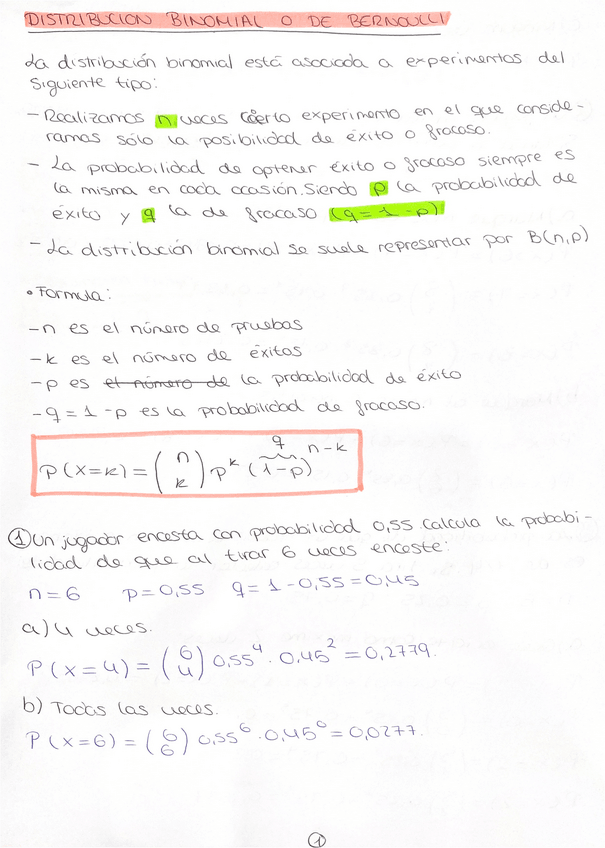 DISTRIBUCIÓN BINOMIAL O DE BERNOULLI
La distribución binomial está asociada a experimentos del
siguiente tipo:
- Realizamos n veces cierto experimento en el que conside-
ramos sólo la posibilidad de éxito o fracaso.
- La probabilidad de optener éxito o fracaso siempre es
la misma en cada ocasión. Siendo p la probabilidad de
éxito y q la de fracaso (q = 1 - p)
- La distribución binomial se suele representar por B(n,p)
• Formula:
- n es el número de pruebas
- k es el número de éxitos
- p es el número de la probabilidad de éxito
- q = 1 - p es la probabilidad de fracaso.
q
P(x=k) = (n k) p^k (1-p)^n-k
① Un jugador encesta con probabilidad 0,55 calcula la probabi-
lidad de que al tirar 6 veces enceste:
n = 6 p = 0,55 q = 1 - 0,55 = 0,45
a) 4 veces.
P(x=4) = (6 4) 0,55^4 · 0,45^2 = 0,2779.
b) Todas las veces.
P(x=6) = (6 6) 0,55^6 · 0,45^0 = 0,0277.
①